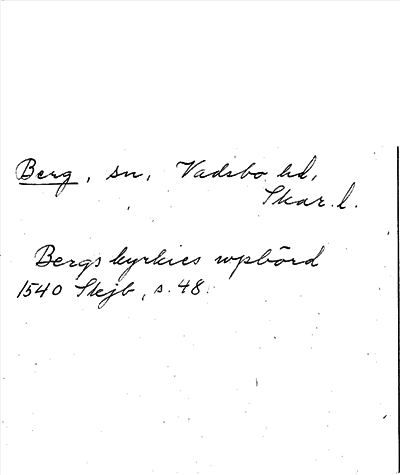 Berg, sn, Vadsbo hd,
Skar. l.
Bergs kyrkies wpbörd
1540 Skjb, s. 48.